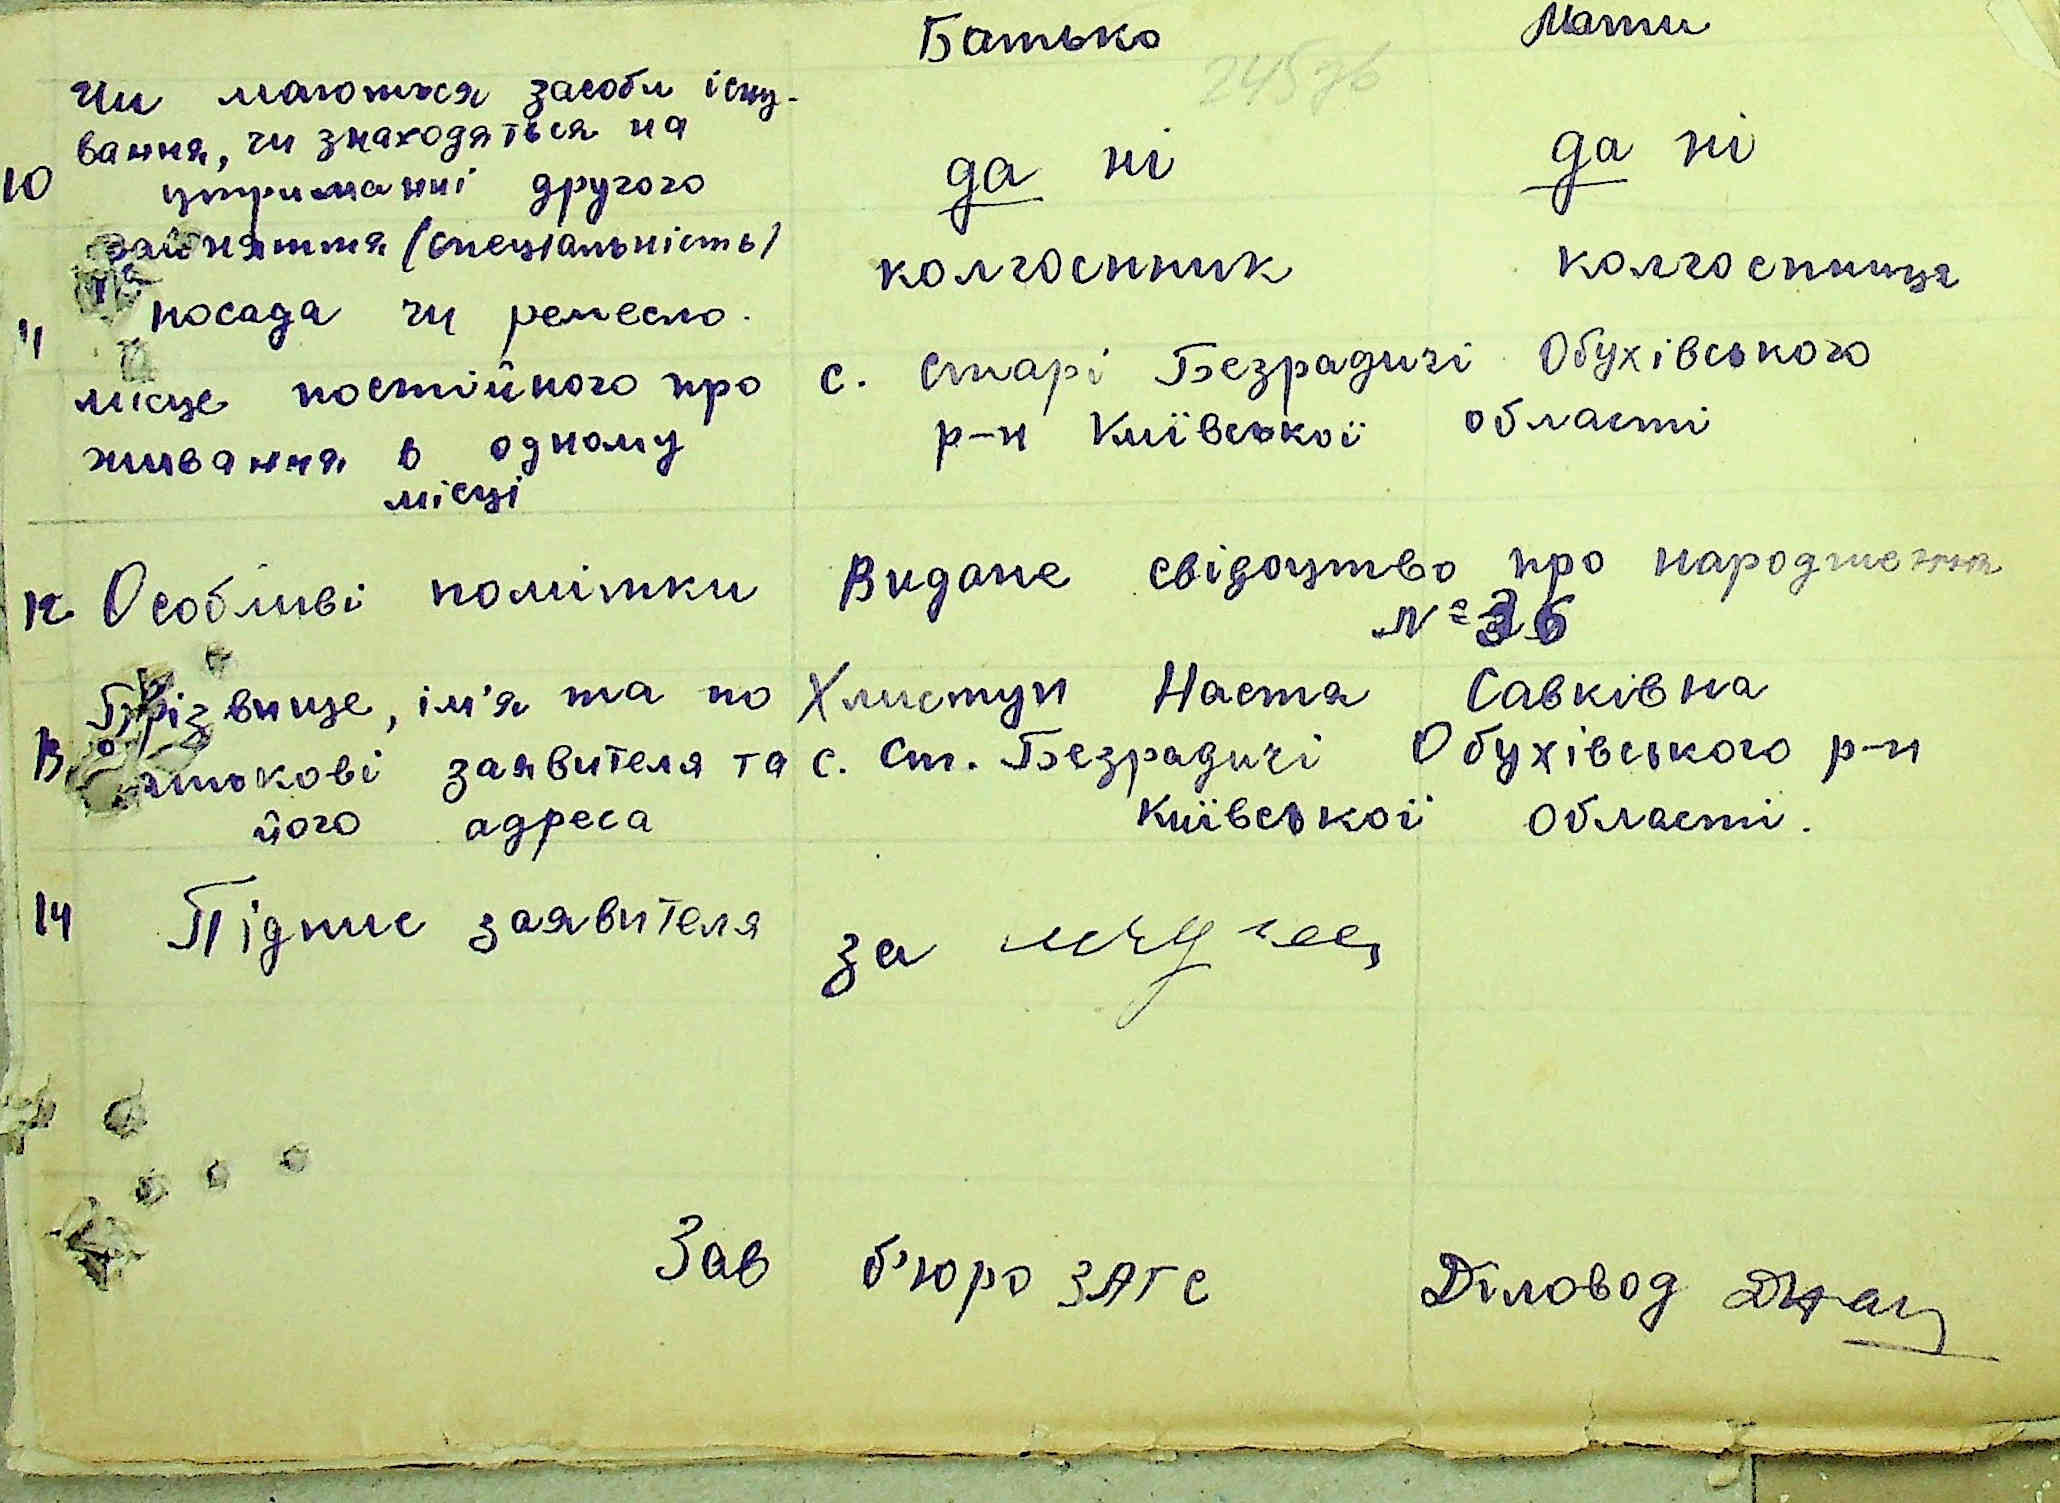 Батько Мати
245зв
Чи маються засоби існу-
вання, чи знаходяться на
10 утриманні другого
да ні да ні
зайняття (спеціальність)
11 посада чи ремесло.
колгоспник колгоспниця
місце постійного про
живання в одному
місці
с. Старі Безрадичі Обухівського
р-н Київської області
12 Особливі помітки Видане свідоцтво про народження
№ 36
Прізвище, ім'я та по Хлистун Настя Савківна
13 атькові заявителя та с. Ст. Безрадичі Обухівського р-н
його адреса Київської області.
14 Підпис заявителя за
Зав б'юро ЗАГС Діловод